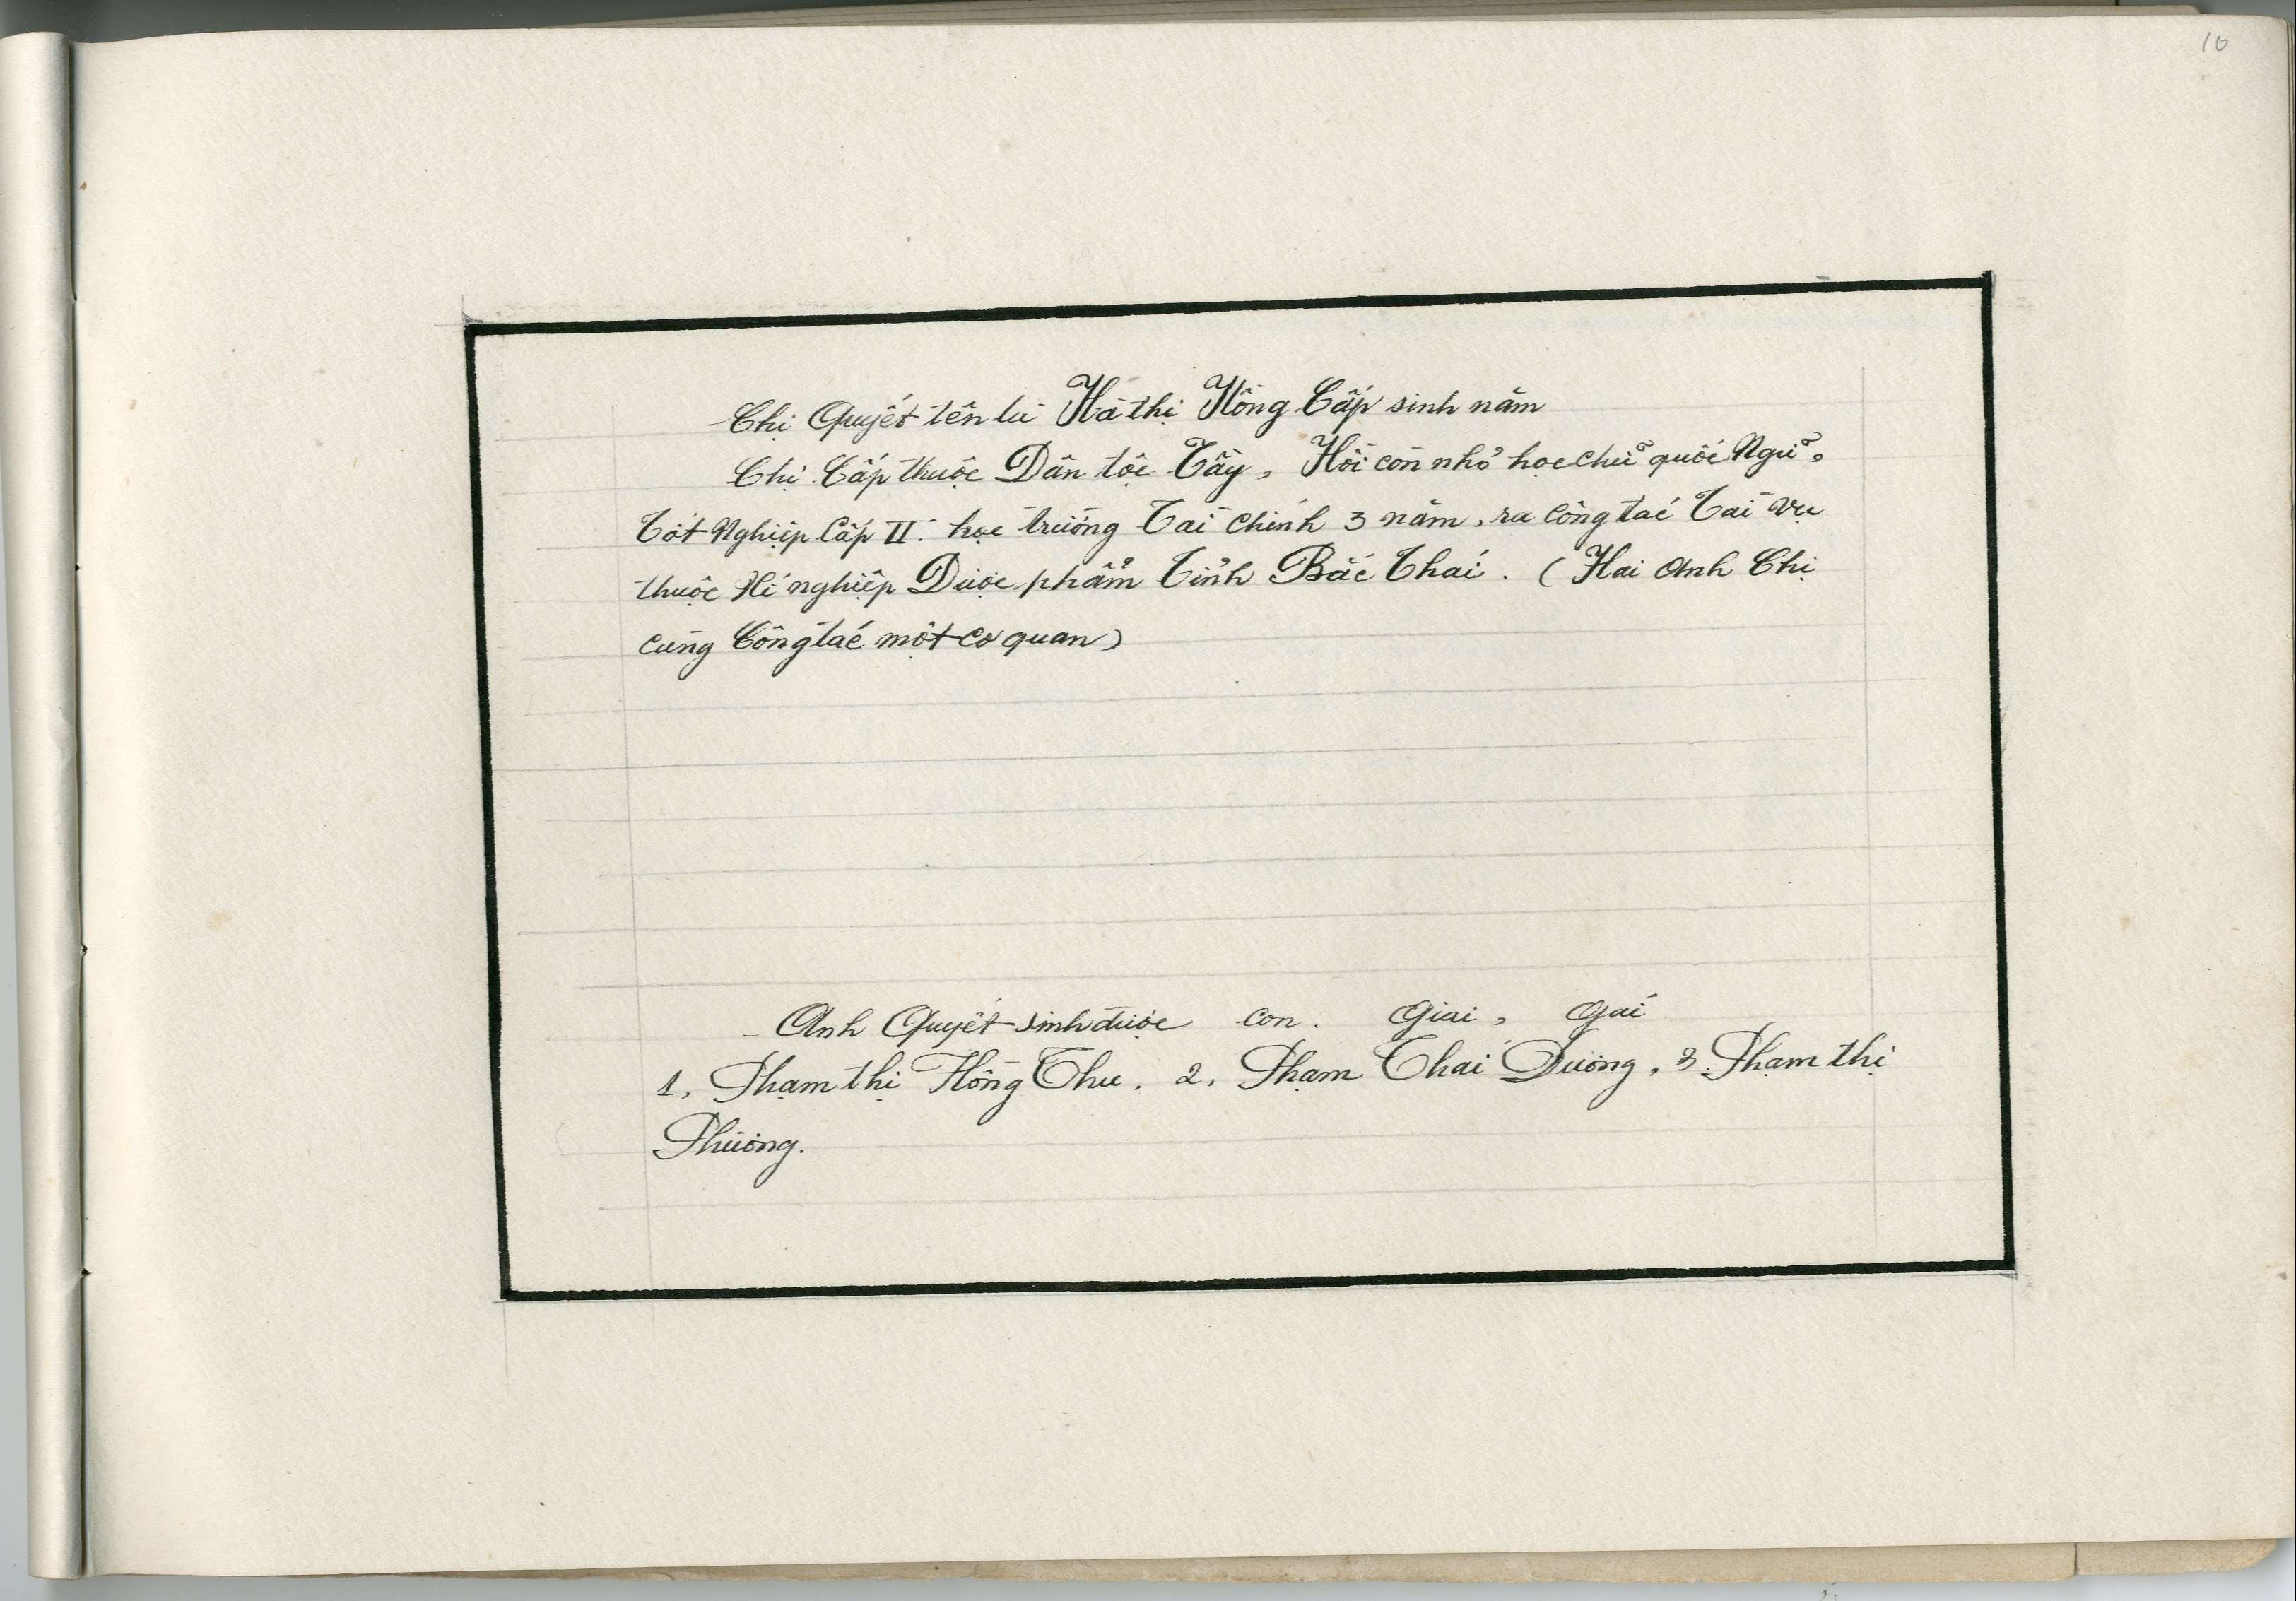 10
Chị Quyết tên là Hà thị Hồng Cấp sinh năm
Chị Cấp thuộc Dân tộc Tầy, Hồi còn nhỏ học chữ quốc Ngữ.
Tốt Nghiệp Cấp II. học trường Tài chính 3 năm, ra công tác Tài vụ
thuộc Xí nghiệp Dược phẩm Tỉnh Bắc Thái. (Hai Anh Chị
cùng Công tác một cơ quan)
Anh Quyết sinh được con. Giai, Gái
1, Phạm thị Hồng Thu. 2, Phạm Thái Dương, 3. Phạm thị
Phương.